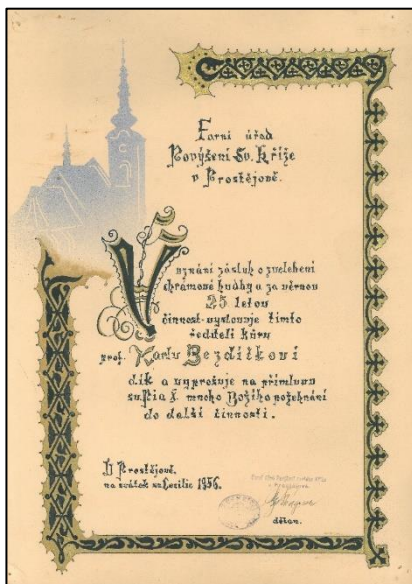 Farní úřad
Povýšení Sv. Kříže
v Prostějově.
V uznání zásluh o zvelebení
chrámové hudby a za věrnou
25 letou
činnost vyslovuje tímto
řediteli kůru
prof. Karlu Bezdíčkovi
dík a vyprošuje na přímluvu
sv. Pia X. mnoho Božího požehnání
do další činnosti.
V Prostějově,
na svátek sv. Cecilie 1956.
děkan.